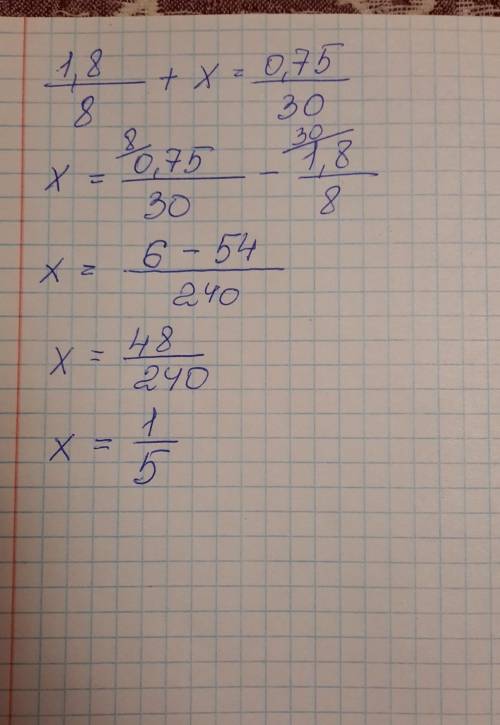 1,8/8 + x = 0,75/30
x = 8/ 0,75/30 - 30/ 1,8/8
x = 6 - 54/240
x = 48/240
x = 1/5